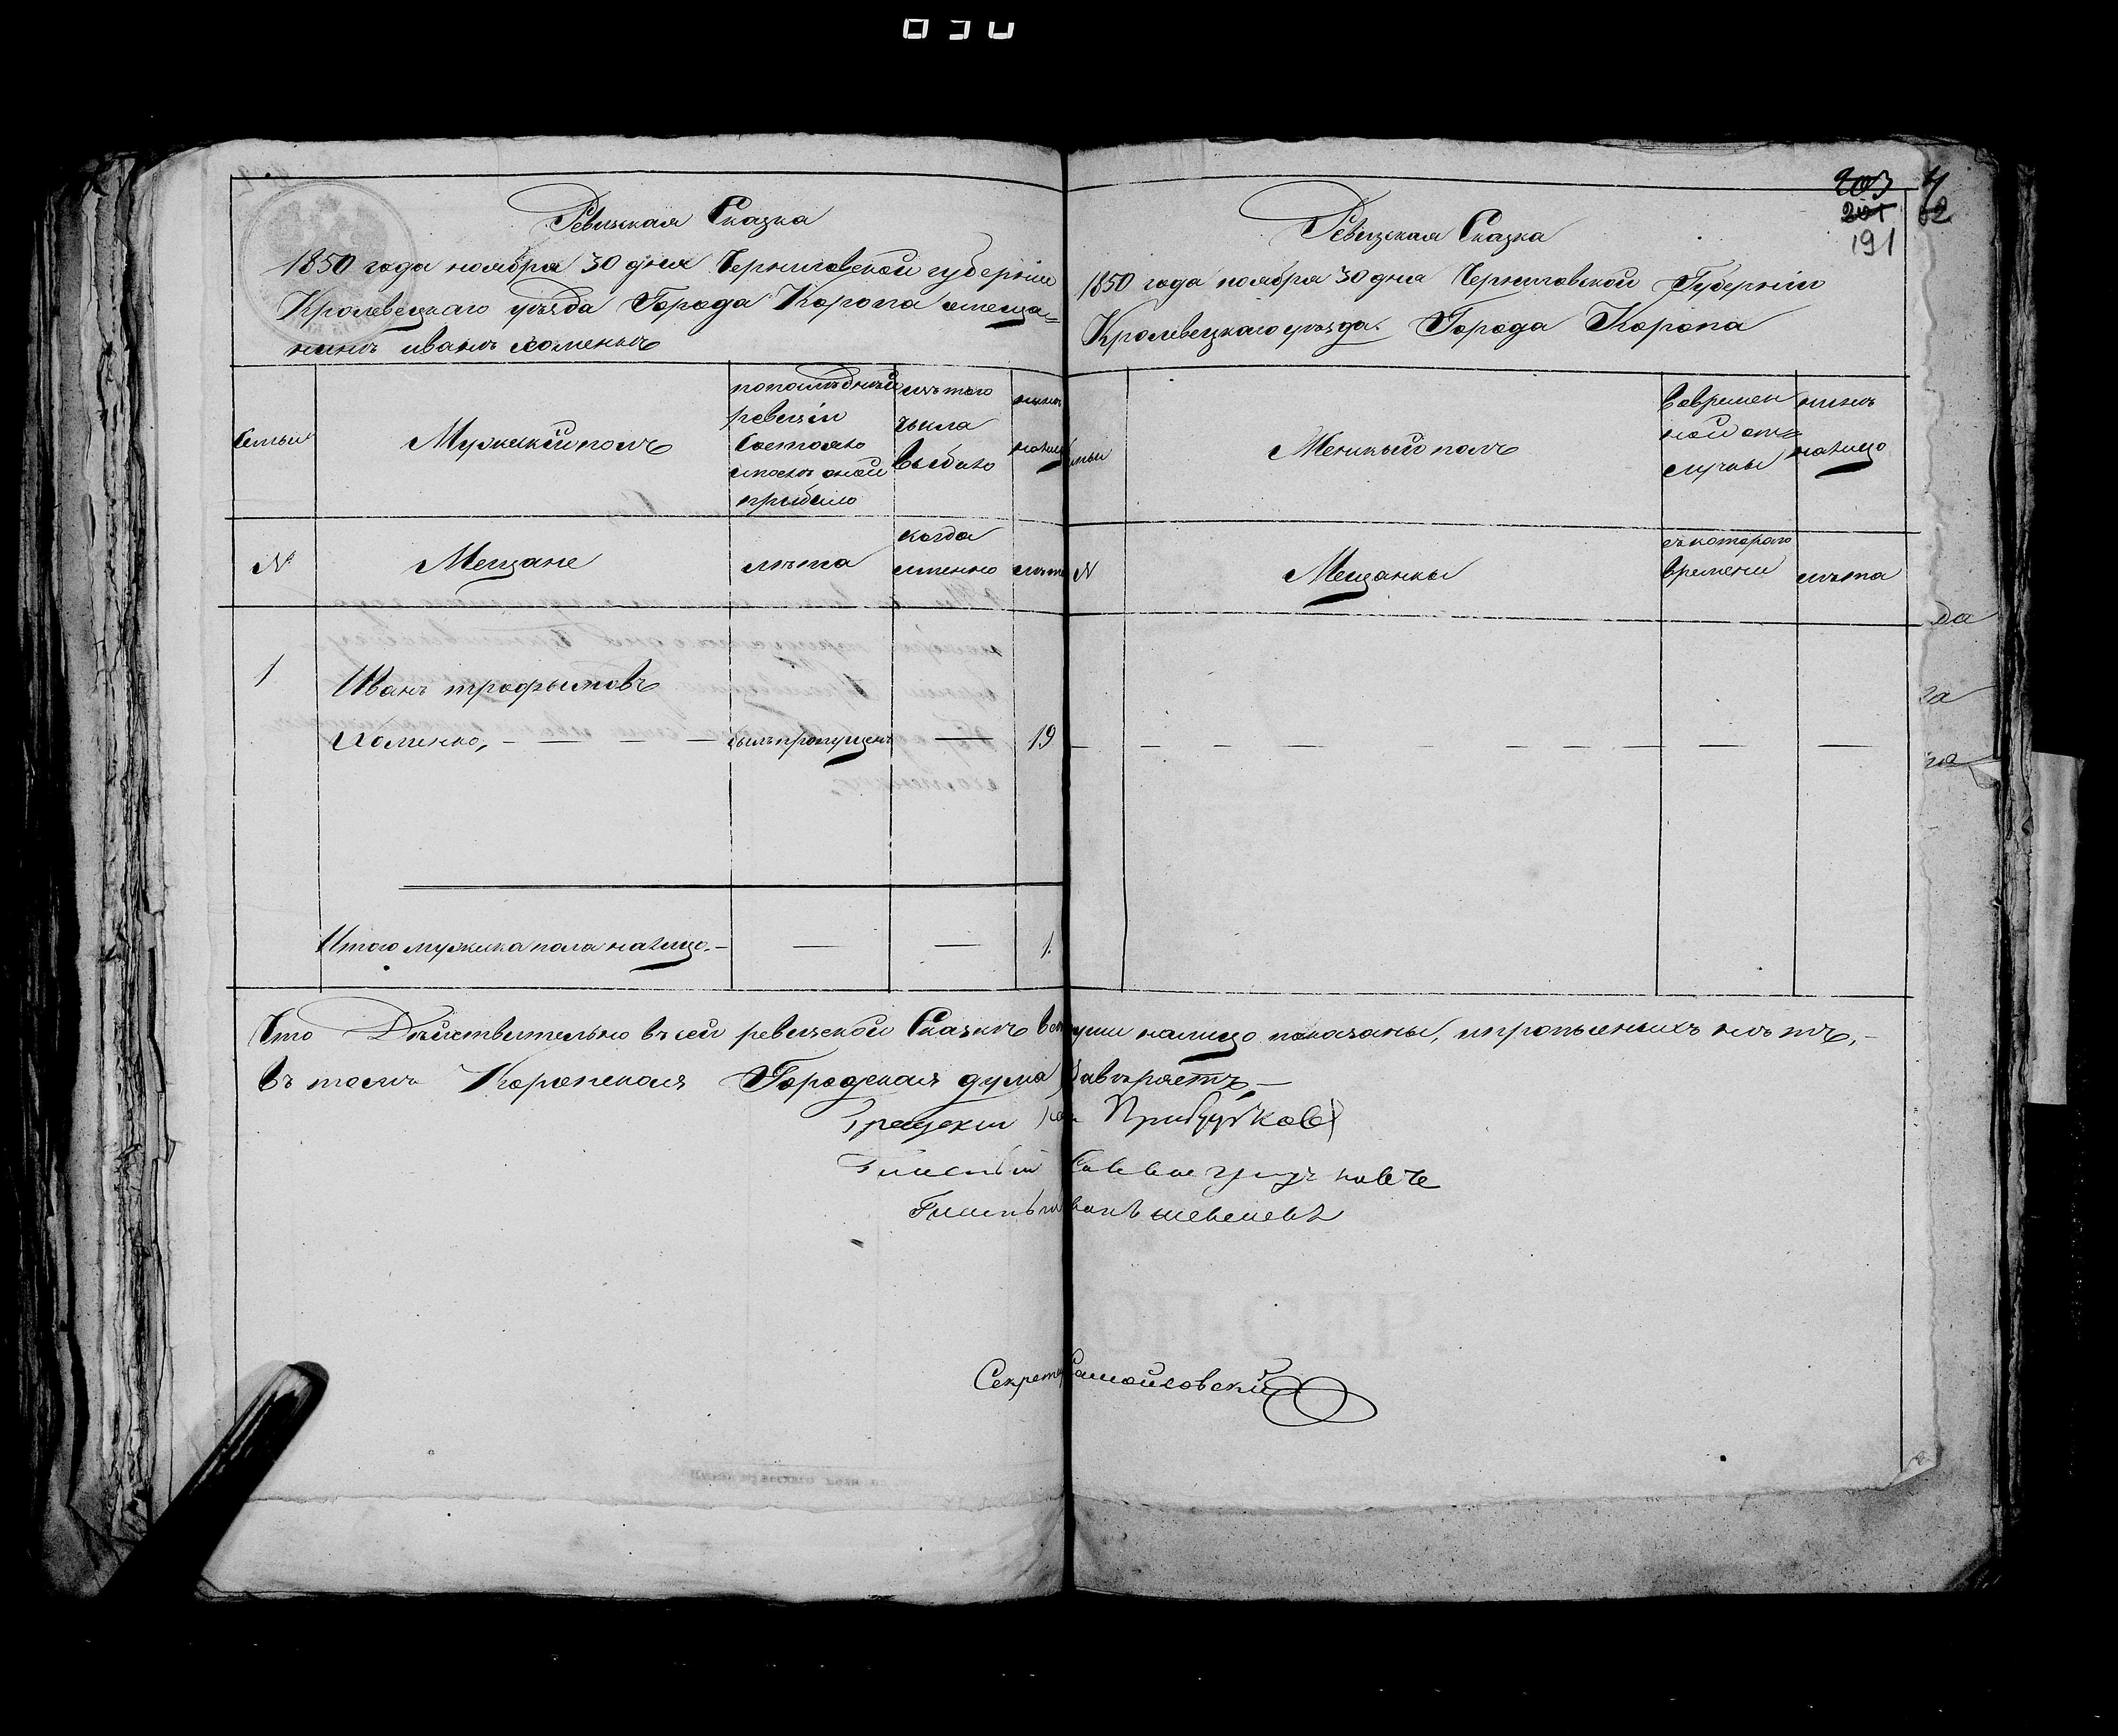 Ревизская Сказка
1850 года ноября 30 дня Черниговской губернии
Кролевецкаго уезда Города Коропа омеща=
нинъ иванъ хоменко
Семьи
Мужескій полъ
по последней
ревизіи
состояло
и после оной
прибыло
изъ того
числа
выбыло
ныне
налицо
№
Мещане
лета
когда
именно
лета
1
Иванъ трофимовъ
Хоменко, — — — — былъ пропущенъ — 19
Итого мужеска пола налицо. — — — 1.
203
201
191
4
62
Ревизская Сказка
1850 года ноября 30 дня Черниговской Губерніи
Кролевецкаго уезда. Города Коропа
Женскый полъ
Вовремен
ной от=
лучкы
ныне
налицо
N
Мещанкы
съ котораго
времени
лета
да
га
Что Действительно въ сей ревизской Сказке все души налицо показаны, и прописныхъ нетъ, —
въ томъ Коропская Городская дума Заверяетъ —
Прибутковъ
Гласный
Гласный
Секретарь Самойловскій